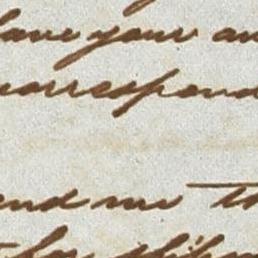 have your an
correspond
end me th